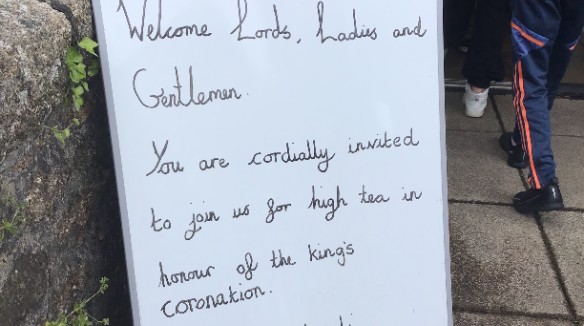 Welcome Lords, Ladies and
Gentlemen.
You are cordially invited
to join us for high tea in
honour of the king's
coronation.